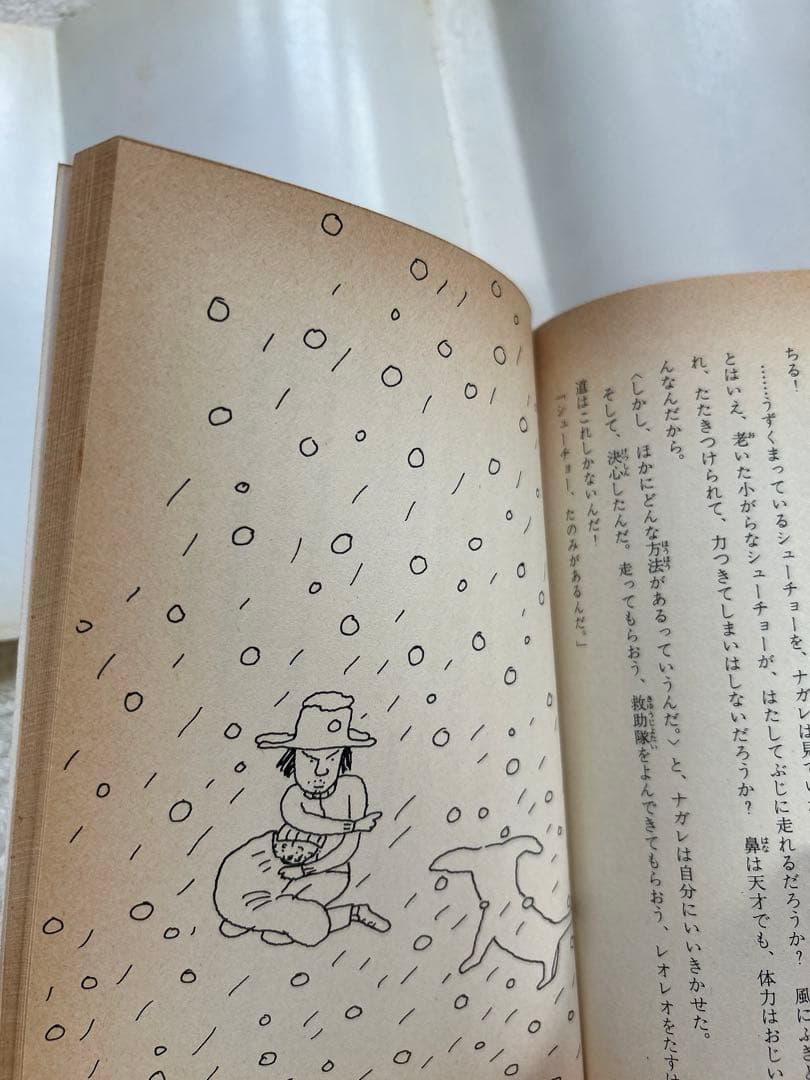 ちる！
……うずくまっているシューチョーを、ナガレは見てい
とはいえ、老いた小がらなシューチョーが、はたしてぶじに走れるだろうか？　風にふき
れ、たたきつけられて、力つきてしまいはしないだろうか？　鼻は天才でも、体力はおじい
んなんだから。
〈しかし、ほかにどんな方法があるっていうんだ。〉と、ナガレは自分にいいきかせた。
そして、決心したんだ。走ってもらおう、救助隊をよんできてもらおう、レオレオをたすけ
道はこれしかないんだ！
「シューチョー、たのみがあるんだ。」